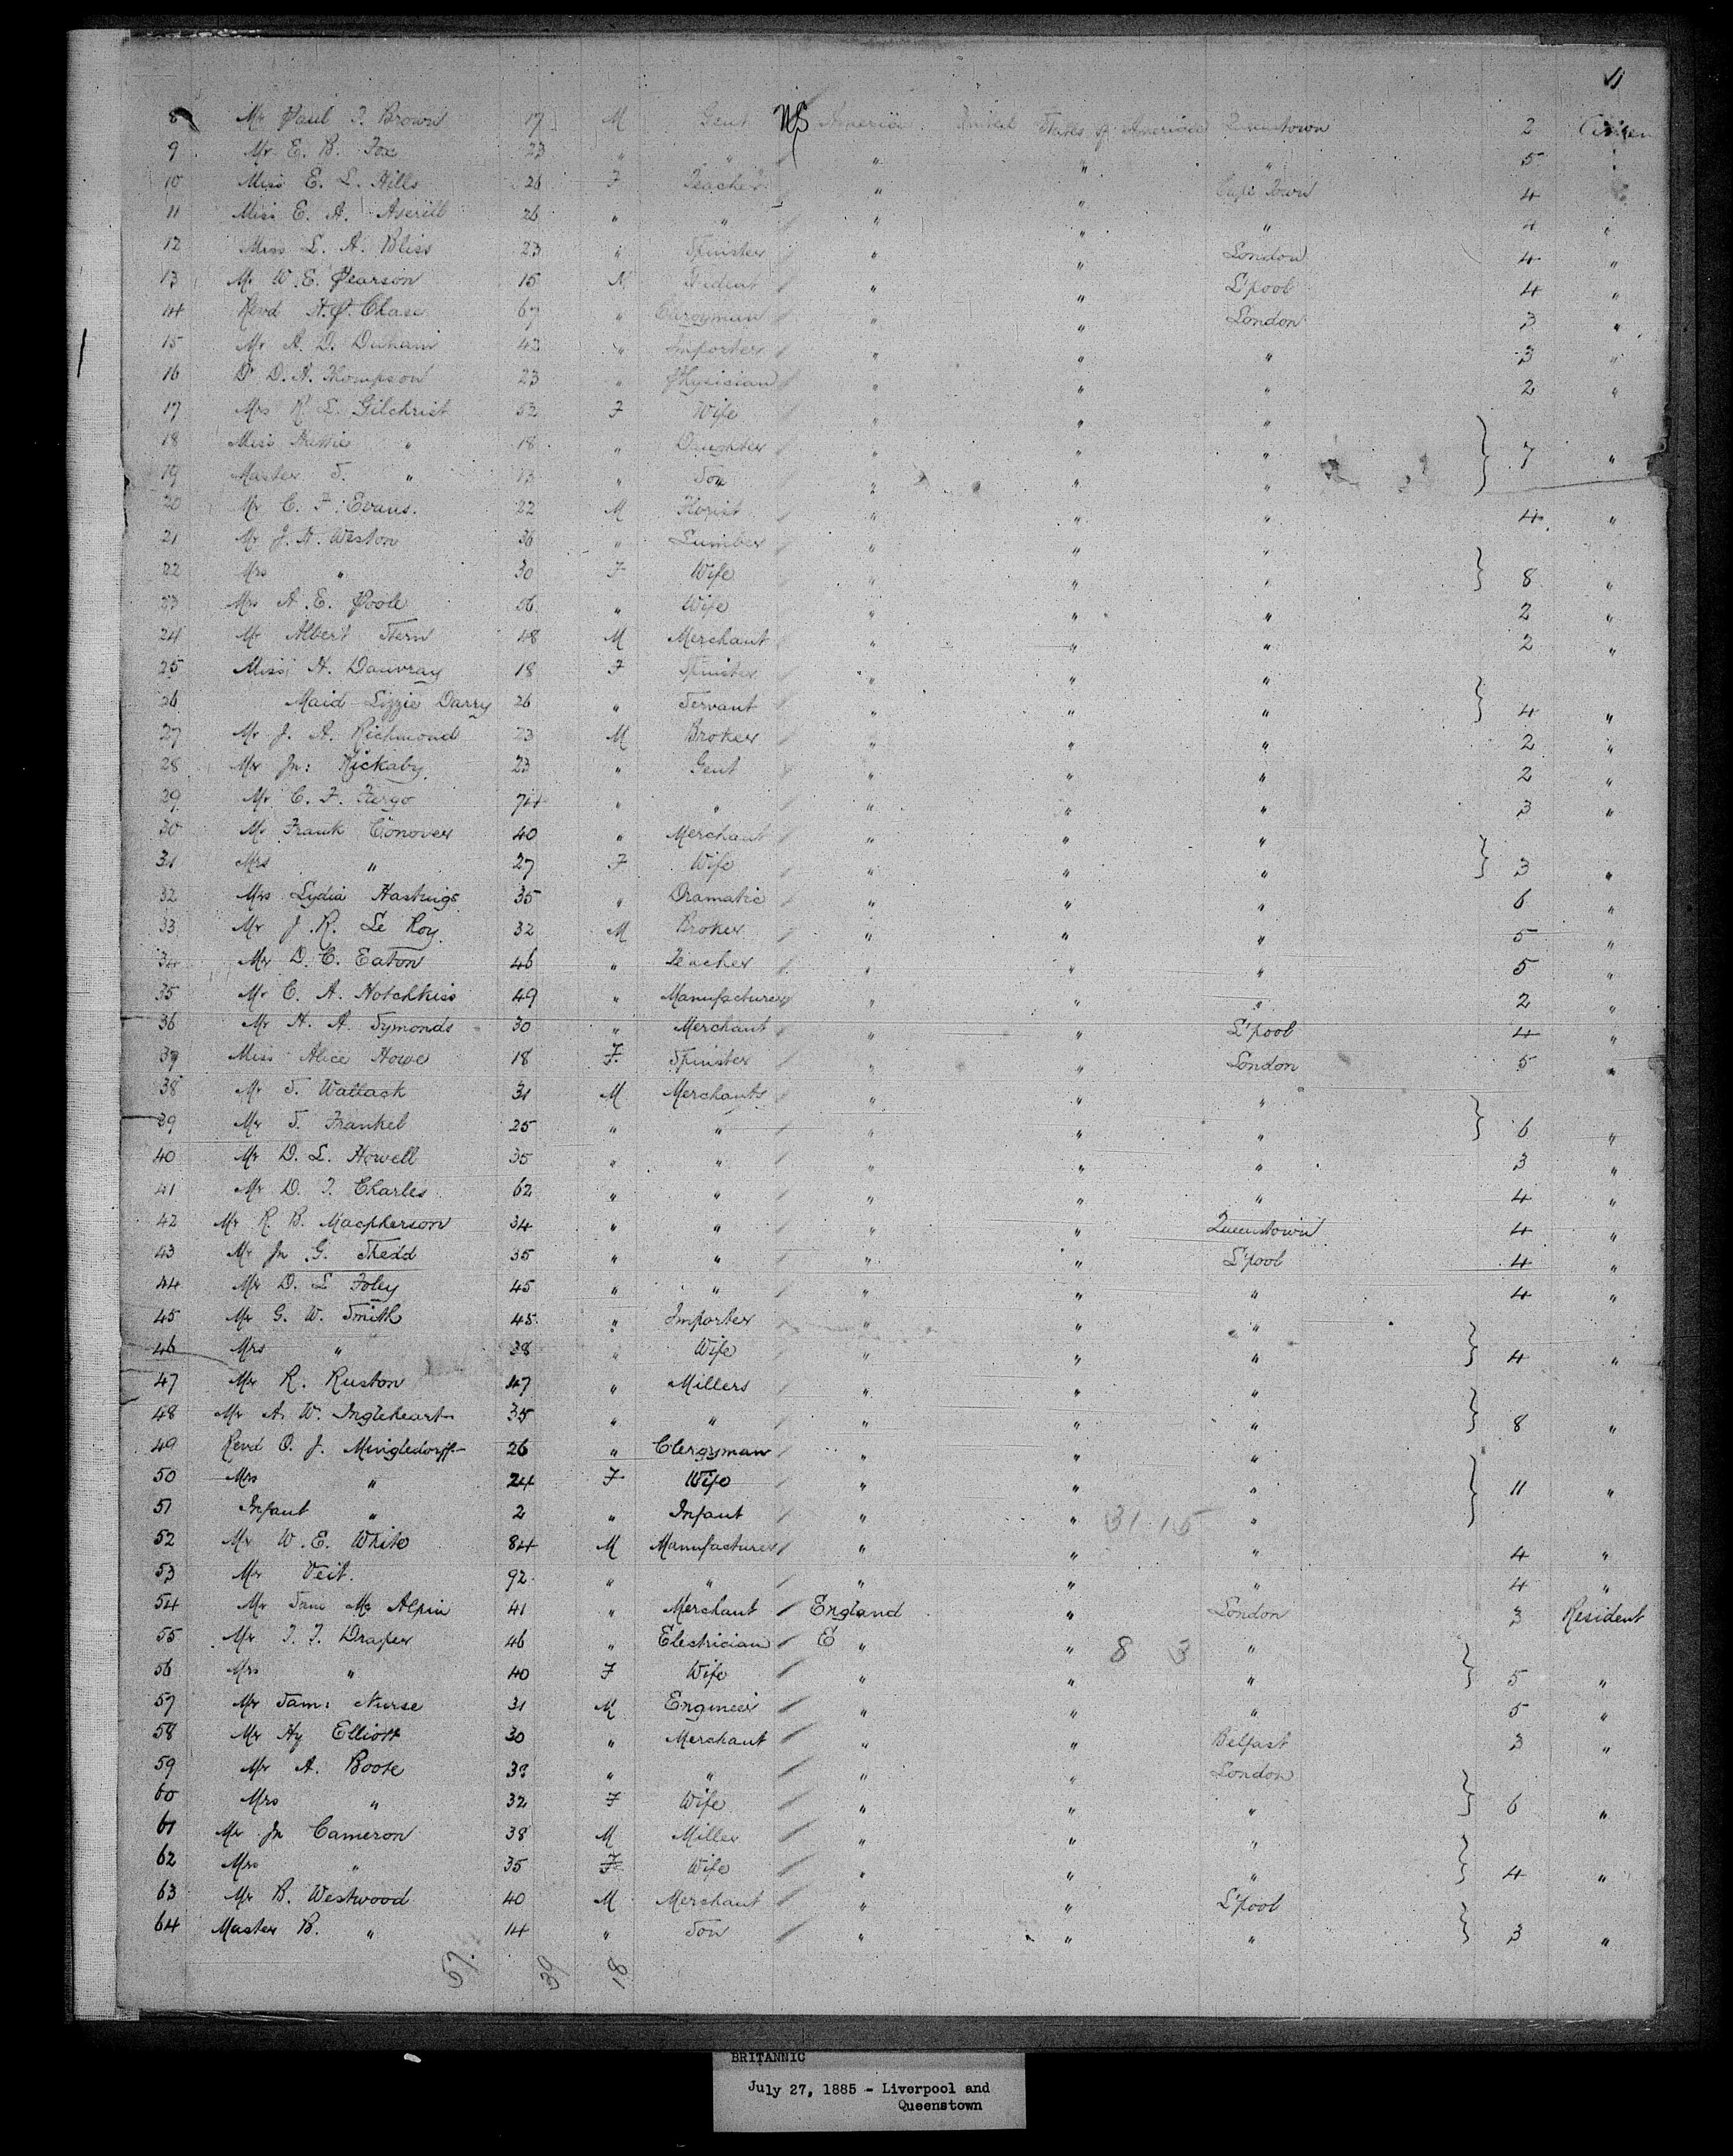 11
8 Mr Paul T. Brown 17 M Gent US America United States of America Queenstown 2 Citizen
9 Mr E. B. Fox 23 " " " " " 5 "
10 Miss E. L. Hills 26 F Teacher " " Cape Town 4
11 Miss E. A. Averill 26 " " " " " 4 "
12 Miss L. A. Bliss 23 " Spinster " " London 4 "
13 Mr W. E. Pearson 15 M Student " " L'pool 4 "
14 Revd H. P. Chase 67 " Clergyman " " London 3 "
15 Mr A. D. 42 " Importer " " " 3 "
16 Dr D. A. Thompson 23 " Physician " " " 2 "
17 Mrs R. L. Gilchrist 52 F Wife " " "
18 Miss " 18 " Daughter " " " } 7 "
19 Master S. " 13 " Son " " "
20 Mr C. F. Evans. 22 M Florist " " " 4 "
21 Mr J. H. Weston 36 " Lumber " " "
22 Mrs " 30 F Wife " " " } 8 "
23 Mrs A. E. Poole 56 " Wife " " " 2 "
24 Mr Albert Stern 48 M Merchant " " " 2 "
25 Miss H. Dauvray 18 F Spinster " " "
26 Maid Lizzie Darry 26 " Servant " " " } 4 "
27 Mr J. A. Richmond 23 M Broker " " " 2 "
28 Mr Jn: Rickaby 23 " Gent " " " 2 "
29 Mr C. F. Fargo 74 " " " " " 3 "
30 Mr Frank Conover 40 " Merchant " " "
31 Mrs " 27 F Wife " " " } 3 "
32 Mrs Lydia Hastings 35 " Dramatic " " " 6 "
33 Mr J. R. Le Roy. 32 M Broker " " " 5 "
34 Mr D. C. Eaton 46 " Teacher " " " 5 "
35 Mr C. A. Hotchkiss 49 " Manufacturer " " " 2 "
36 Mr H. A. Symonds 30 " Merchant " " L'pool 4 "
37 Miss Alice Howe 18 F Spinster " " London 5 "
38 Mr S. Wallack 31 M Merchants " " "
39 Mr S. Frankel 25 " " " " " } 6 "
40 Mr D. L. Howell 35 " " " " " 3 "
41 Mr D. T. Charles 62 " " " " " 4 "
42 Mr R. B. Macpherson 34 " " " " Queenstown 4 "
43 Mr Jn G. Shedd 35 " " " " L'pool 4 "
44 Mr D. L Foley 45 " " " " " 4 "
45 Mr G. W. Smith 45 " Importer " " "
46 Mrs " 38 " Wife " " " } 4 "
47 Mr R. Ruston 47 " Millers " " "
48 Mr A. W. Ingleheart 35 " " " " " } 8 "
49 Revd O. J. Mingledorff 26 " Clergyman " " "
50 Mrs " 24 F Wife " " " } 11 "
51 Infant " 2 " Infant " " 31 15 "
52 Mr W. E. White 84 M Manufacturer " " " 4 "
53 Mr Veit. 92 " " " " " 4 "
54 Mr Sam Mc Alpin 41 " Merchant England " London 3 Resident
55 Mr T. T. Draper 46 " Electrician E " " 8 3 "
56 Mrs " 40 F Wife " " " } 5 "
57 Mr Sam: Nurse 31 M Engineer " " " 5 "
58 Mr Hy Elliott 30 " Merchant " " Belfast 3 "
59 Mr A. Boote " " " " London
60 Mrs " 32 F Wife " " " } 6 "
61 Mr Jn Cameron 38 M Miller " " "
62 Mrs " 35 F Wife " " " } 4 "
63 Mr B. Westwood 40 M Merchant " " L'pool
64 Master B. " 14 " Son " " " } 3 "
57. 39 18
BRITANNIC
July 27, 1885 - Liverpool and
Queenstown